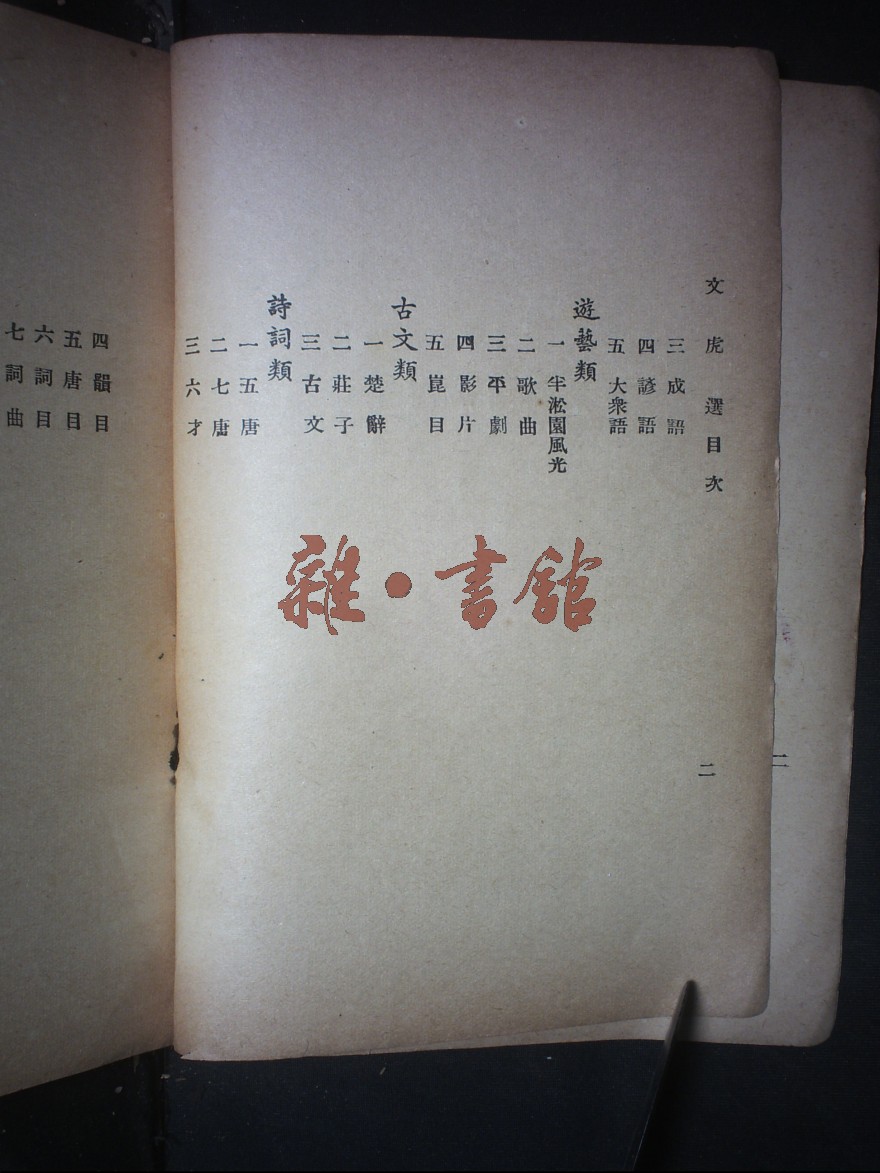 文虎選目次
三成語
四諺語
五大衆語
遊藝類
一半淞園風光
二歌曲
三平劇
四影片
五崑目
古文類
一楚辭
二莊子
三古文
詩詞類
一五唐
二七唐
三六才
二
四韻目
五唐目
六詞目
七詞曲
二
雜·書館